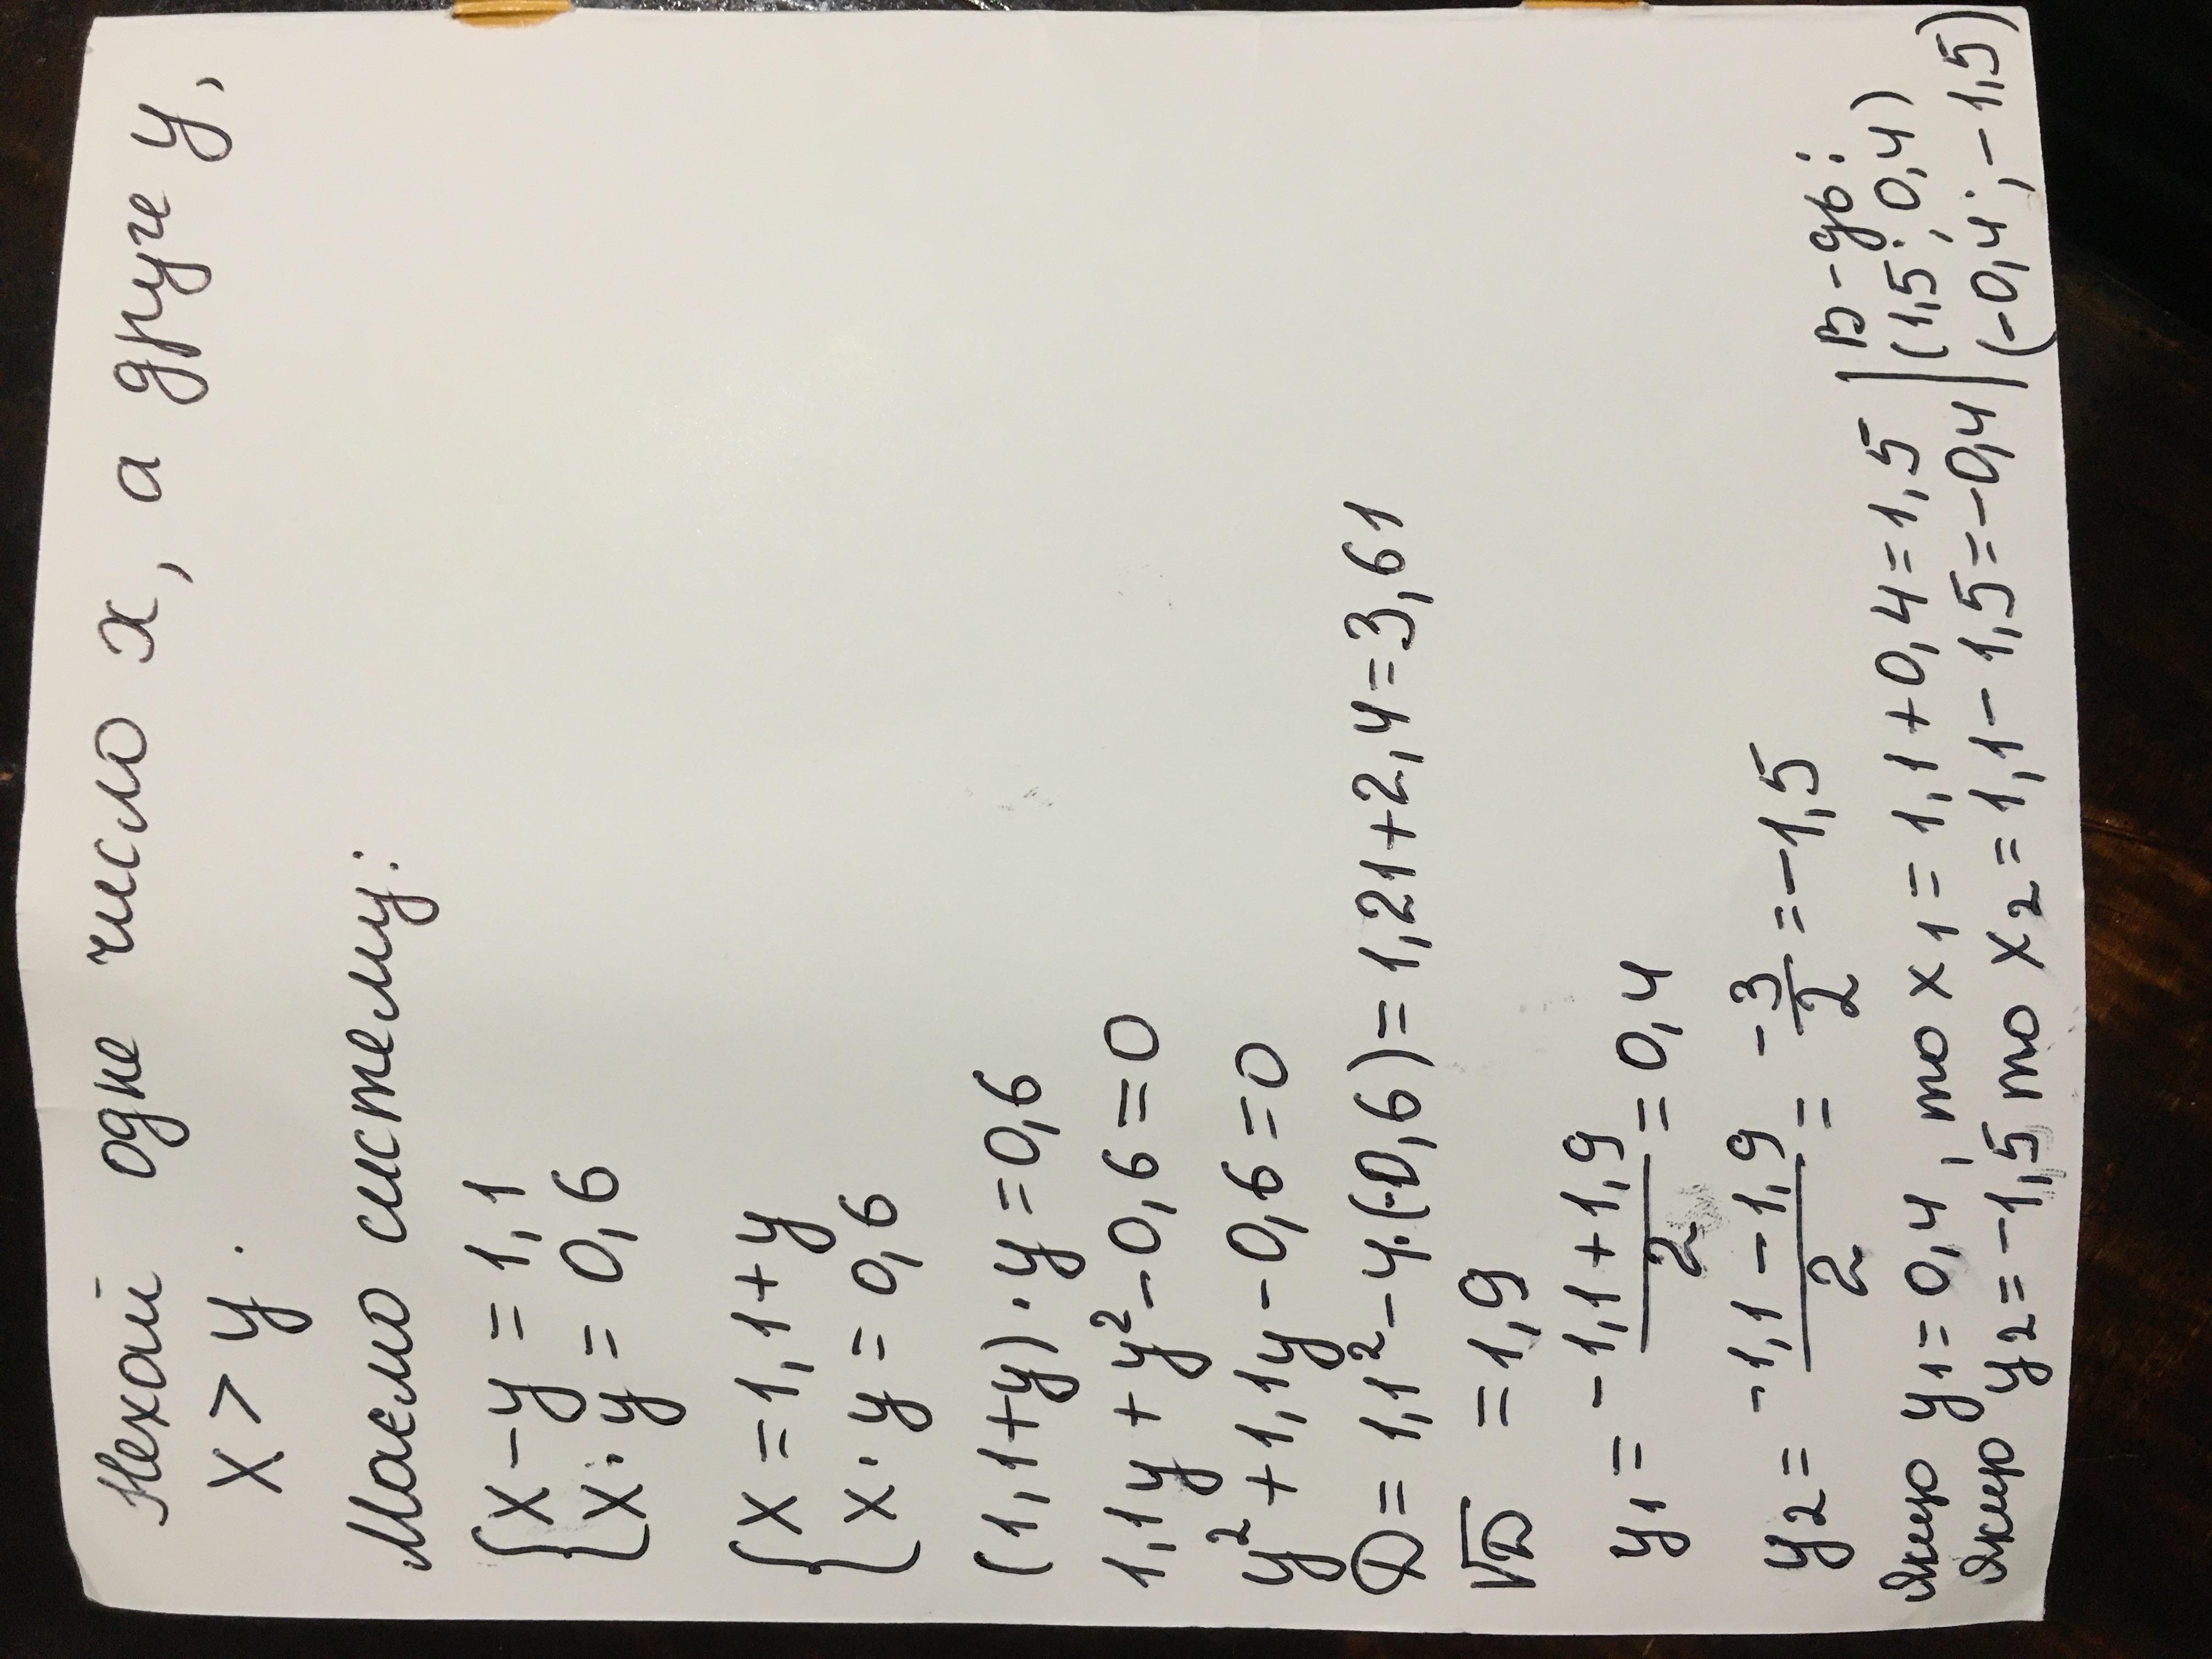 Нехай одне число x, а друге y,
x > y.
Маємо систему:
{x - y = 1,1
{x · y = 0,6
{x = 1,1 + y
{x · y = 0,6
(1,1+y) · y = 0,6
1,1y + y² - 0,6 = 0
y² + 1,1y - 0,6 = 0
D = 1,1² - 4·(-0,6) = 1,21 + 2,4 = 3,61
√D = 1,9
y₁ = (-1,1 + 1,9)/2 = 0,4
y₂ = (-1,1 - 1,9)/2 = -3/2 = -1,5
Якщо y₁ = 0,4, то x₁ = 1,1 + 0,4 = 1,5
Якщо y₂ = -1,5 то x₂ = 1,1 - 1,5 = -0,4
В-дь:
(1,5; 0,4)
(-0,4; -1,5)